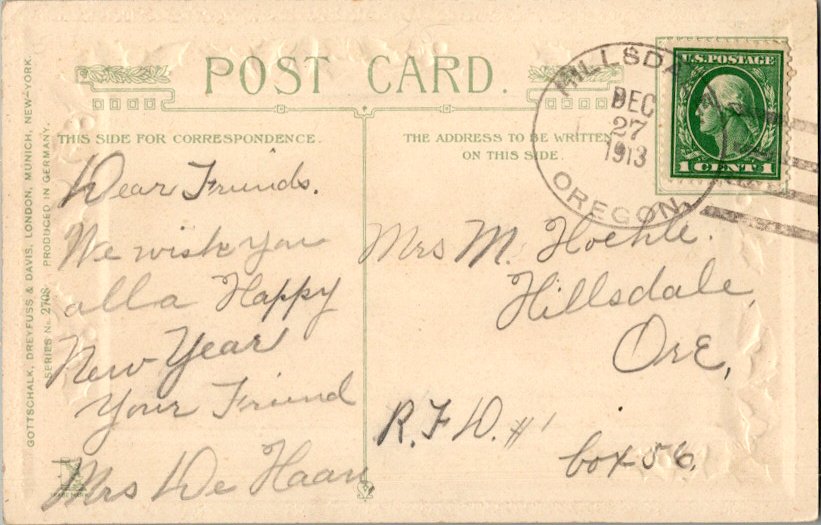 POST CARD.
THIS SIDE FOR CORRESPONDENCE.
THE ADDRESS TO BE WRITTEN
ON THIS SIDE.
GOTTSCHALK, DREYFUSS & DAVIS, LONDON, MUNICH, NEW-YORK.
SERIES No. 2708 PRODUCED IN GERMANY.
HILLSDA
DEC
27
1913
OREGON.
U.S. POSTAGE
1 CENT 1
Dear Friends.
We wish you
all a Happy
New Year
Your Friend
Mrs De Haan
Mrs M. Hoehle.
Hillsdale,
Ore,
R.F.D. #1
box 56.